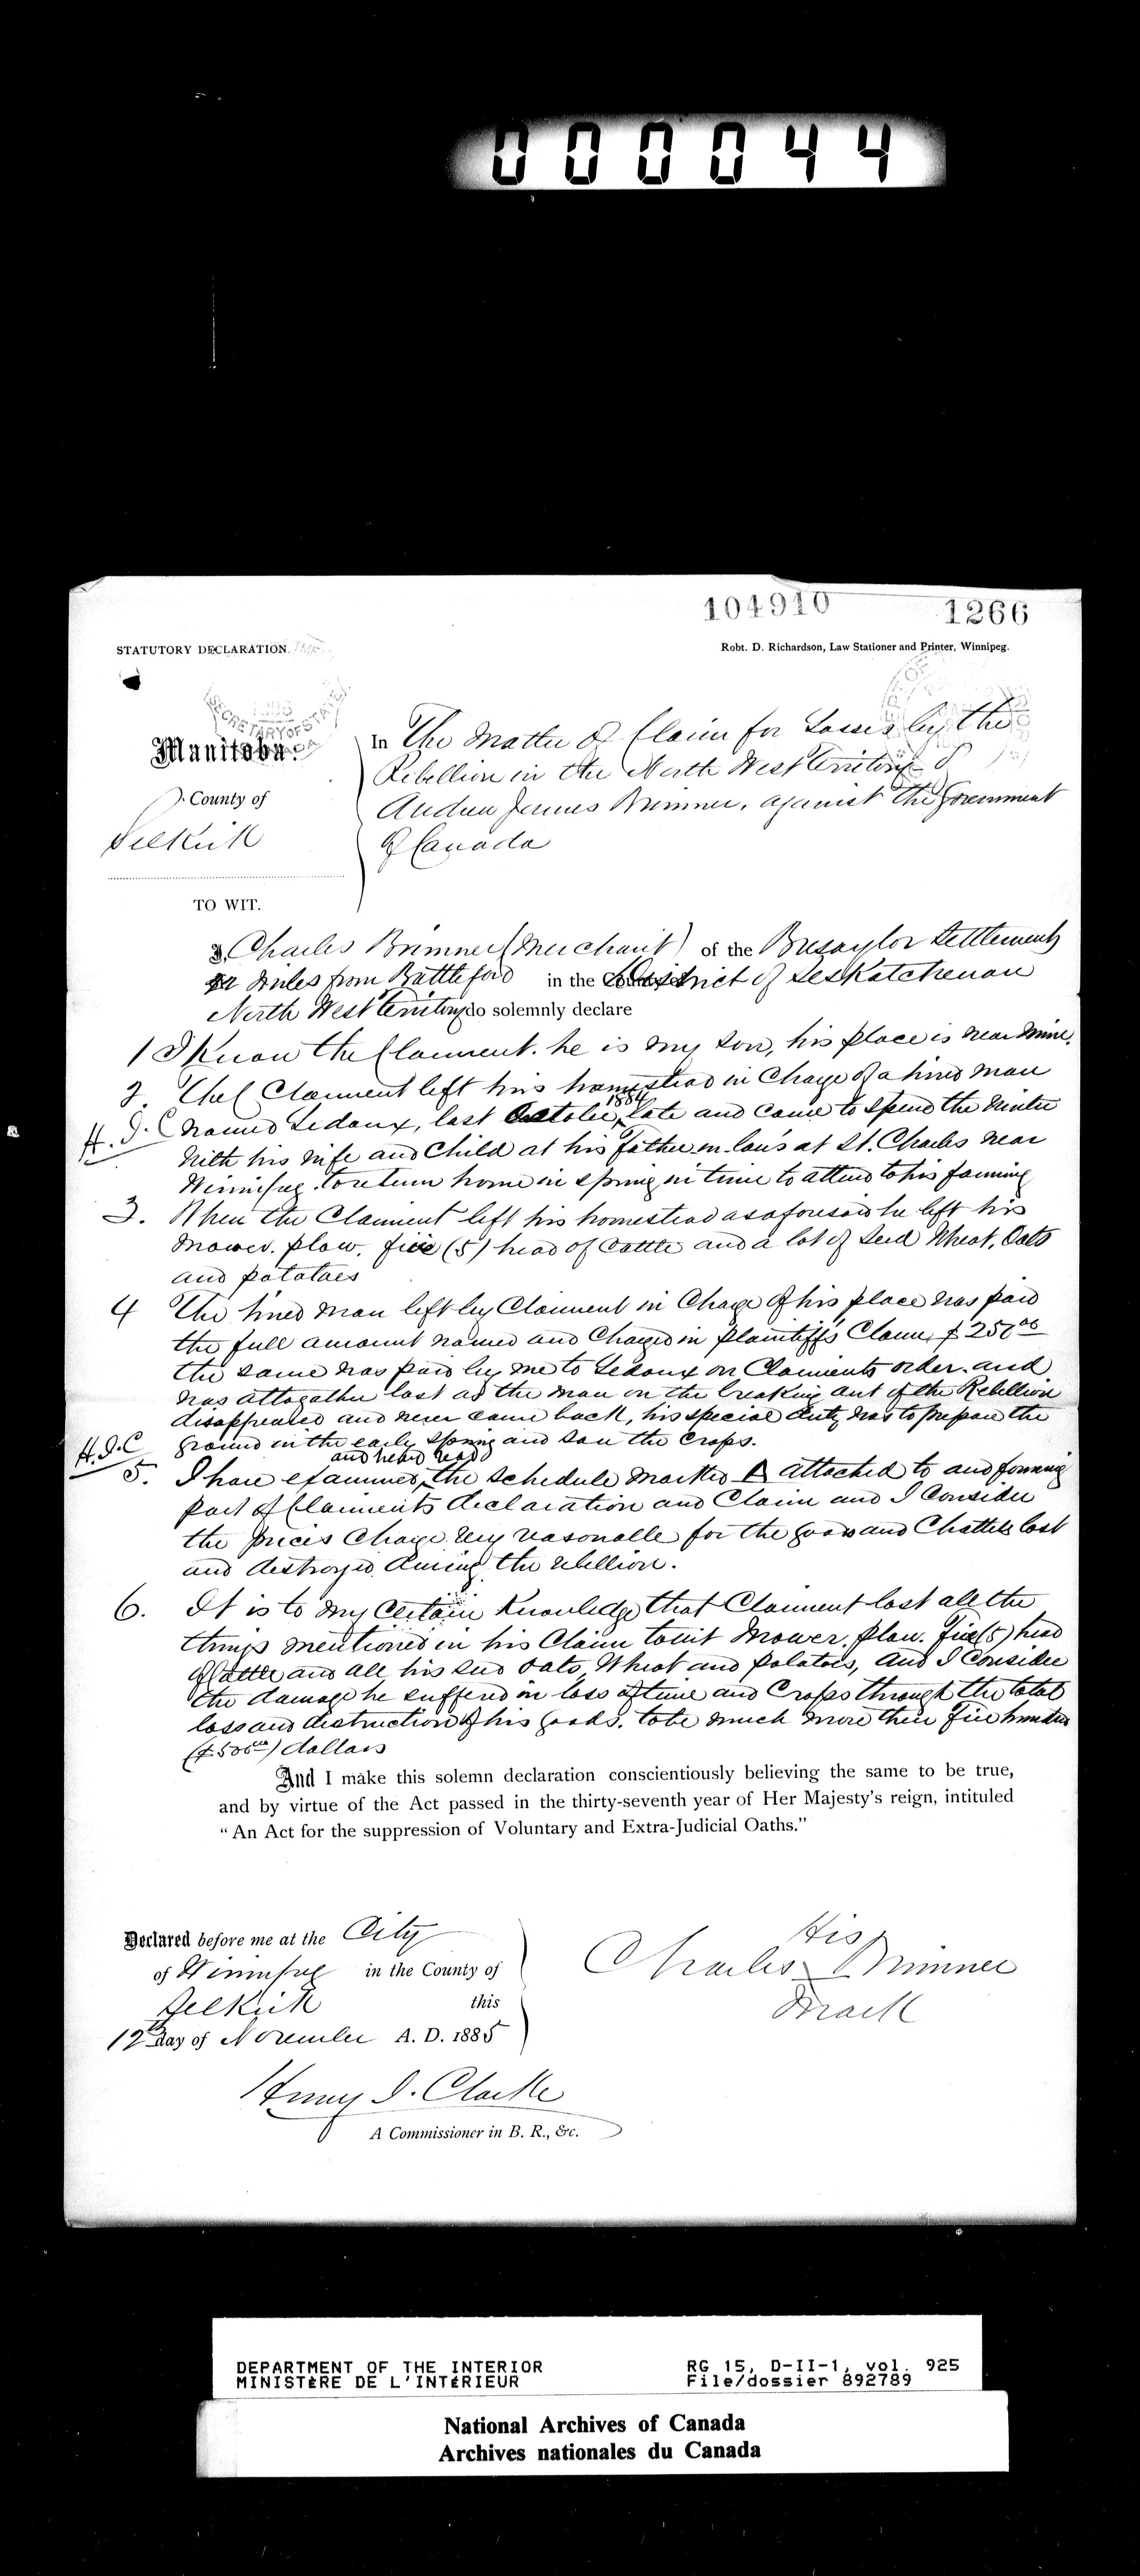 000044
104910 1266
STATUTORY DECLARATION.
Robt. D. Richardson, Law Stationer and Printer, Winnipeg.
Manitoba.
County of
Selkirk
TO WIT.
In The Matter of Claim for Losses by the
Rebellion in the North West Territory of
Andrew James Bremner, against the Government
of Canada
I, Charles Bremner (Merchant) of the Bresaylor Settlement
miles from Battleford in the District of Saskatchewan
North West Territory do solemnly declare
1 I Know the Claiment. he is my son, his place is near mine.
2. The Claiment left his homestead in Charge of a hired man
H.J.C named Ledoux, last October, 1884 late and came to spend the Winter
With his wife and Child at his father-in-law's at St. Charles near
Winnipeg. to return home in spring in time to attend to his farming
3. When the Claiment left his homestead as aforesaid he left his
Mower, plow, five (5) head of Cattle and a lot of Seed Wheat, Oats
and potatoes
4 The hired man left by Claiment in Charge of his place was paid
the full amount named and Charged in plaintiff's Claim, $ 250 00
the same was paid by me to Ledoux on Claiments order. and
was altogather lost as the man on the breaking out of the Rebellion
disappeared and never came back, his special duty was to prepare the
H.J.C ground in the early spring and sow the crops.
5. I have examined, and heard read the Schedule marked A attached to and forming
part of Claiments declaration and Claim and I Consider
the prices Charge very reasonable for the goods and Chattels lost
and destroyed during the rebellion.
6. It is to my Certain Knowledge that Claiment lost all the
things mentioned in his Claim towit Mower, plow. five (5) head
of Cattle and all his seed Oats, Wheat and potatoes, and I Consider
the damage he suffered in loss of time and Crops through the total
loss and distruction of his goods. to be much more then five hundred
($500 00) dollars
And I make this solemn declaration conscientiously believing the same to be true,
and by virtue of the Act passed in the thirty-seventh year of Her Majesty's reign, intituled
"An Act for the suppression of Voluntary and Extra-Judicial Oaths."
Declared before me at the City
of Winnipeg in the County of
Selkirk this
12th day of November A. D. 1885
His
Charles X Bremner
Mark
Henry J. Clarke
A Commissioner in B. R., &c.
DEPARTMENT OF THE INTERIOR
MINISTÈRE DE L'INTÉRIEUR
RG 15, D-II-1, vol. 925
File/dossier 892789
National Archives of Canada
Archives nationales du Canada